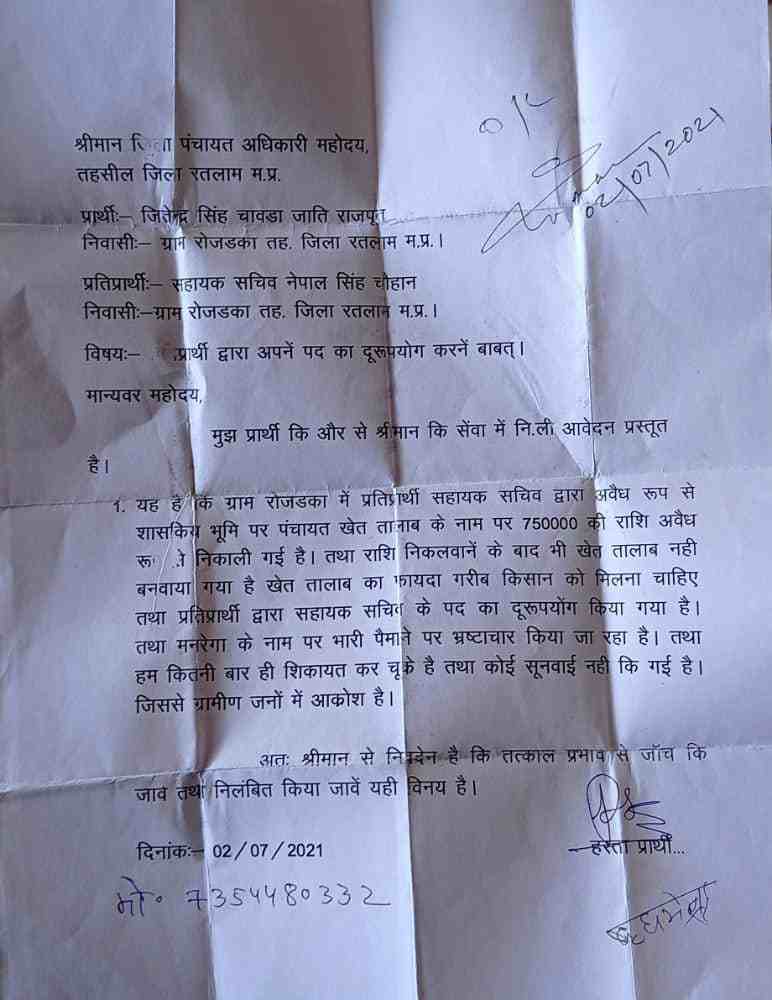 श्रीमान जिला पंचायत अधिकारी महोदय,
तहसील जिला रतलाम म.प्र.
02/07/2021
प्रार्थीः– जितेन्द्र सिंह चावडा जाति राजपूत
निवासीः– ग्राम रोजडका तह. जिला रतलाम म.प्र.।
प्रतिप्रार्थीः– सहायक सचिव नेपाल सिंह चौहान
निवासीः–ग्राम रोजडका तह. जिला रतलाम म.प्र.।
विषयः– प्रार्थी द्वारा अपनें पद का दूरूपयोग करनें बाबत्।
मान्यवर महोदय,
मुझ प्रार्थी कि और से श्रीमान कि सेंवा में नि.ली आवेदन प्रस्तूत
है।
1. यह है कि ग्राम रोजडका में प्रतिप्रार्थी सहायक सचिव द्वारा अवैध रूप से
शासकिय भूमि पर पंचायत खेत तालाब के नाम पर 750000 की राशि अवैध
निकाली गई है। तथा राशि निकलवानें के बाद भी खेत तालाब नही
बनवाया गया है खेत तालाब का फायदा गरीब किसान को मिलना चाहिए
तथा प्रतिप्रार्थी द्वारा सहायक सचिव के पद का दूरूपयोंग किया गया है।
तथा मनरेगा के नाम पर भारी पैमाने पर भ्रष्टाचार किया जा रहा है। तथा
हम कितनी बार ही शिकायत कर चूके है तथा कोई सूनवाई नही कि गई है।
जिससे ग्रामीण जनों में आकोश है।
अतः श्रीमान से निवेदन है कि तत्काल प्रभाव से जॉच कि
जाव तथा निलंबित किया जावें यही विनय है।
दिनांकः– 02/07/2021
हस्ता प्रार्थी...
मो॰ 7354480332